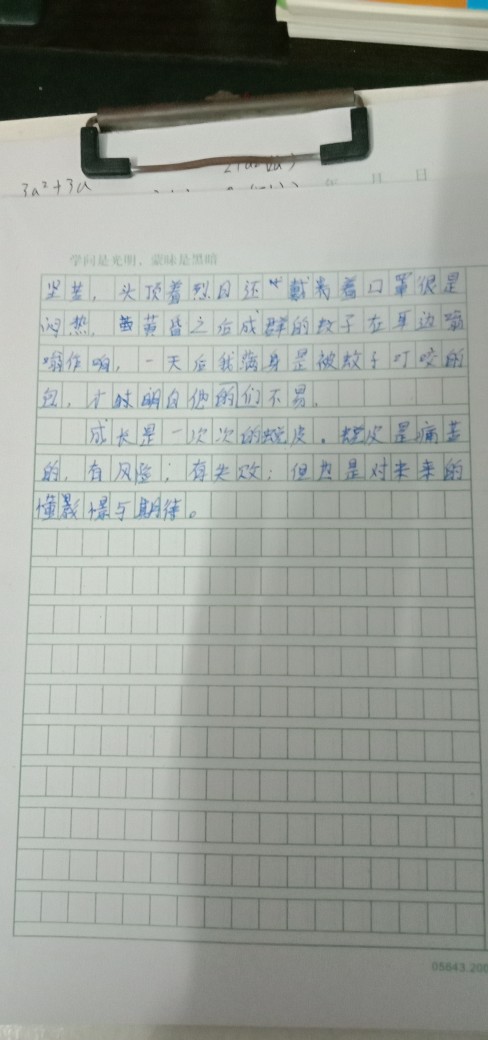 3a²+3a
年 月 日
学问是光明、蒙昧是黑暗
坚苦，头顶着烈日还戴着口罩很是
闷热，黄昏之后成群的蚊子在耳边嗡
嗡作响，一天后我满身是被蚊子叮咬的
包，才明白他们不易。
成长是一次次的蜕皮。蜕皮是痛苦
的，有风险；有失败；但也是对未来的
憧憬与期待。
05643.200